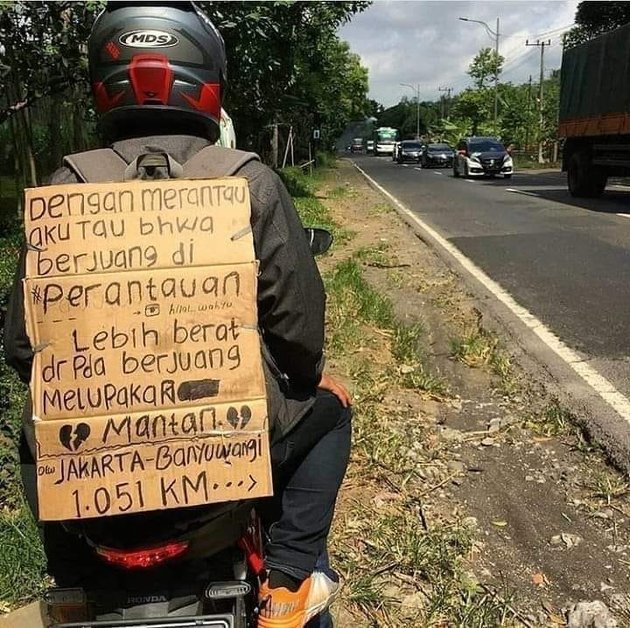 MDS
Dengan merantau
aku tau bhwa
berjuang di
#Perantauan
→ hilal_wahyu
Lebih berat
dr Pda berjuang
MELUPAKAR
Mantan
otw JAKARTA-Banyuwangi
1.051 KM....>
HONDA